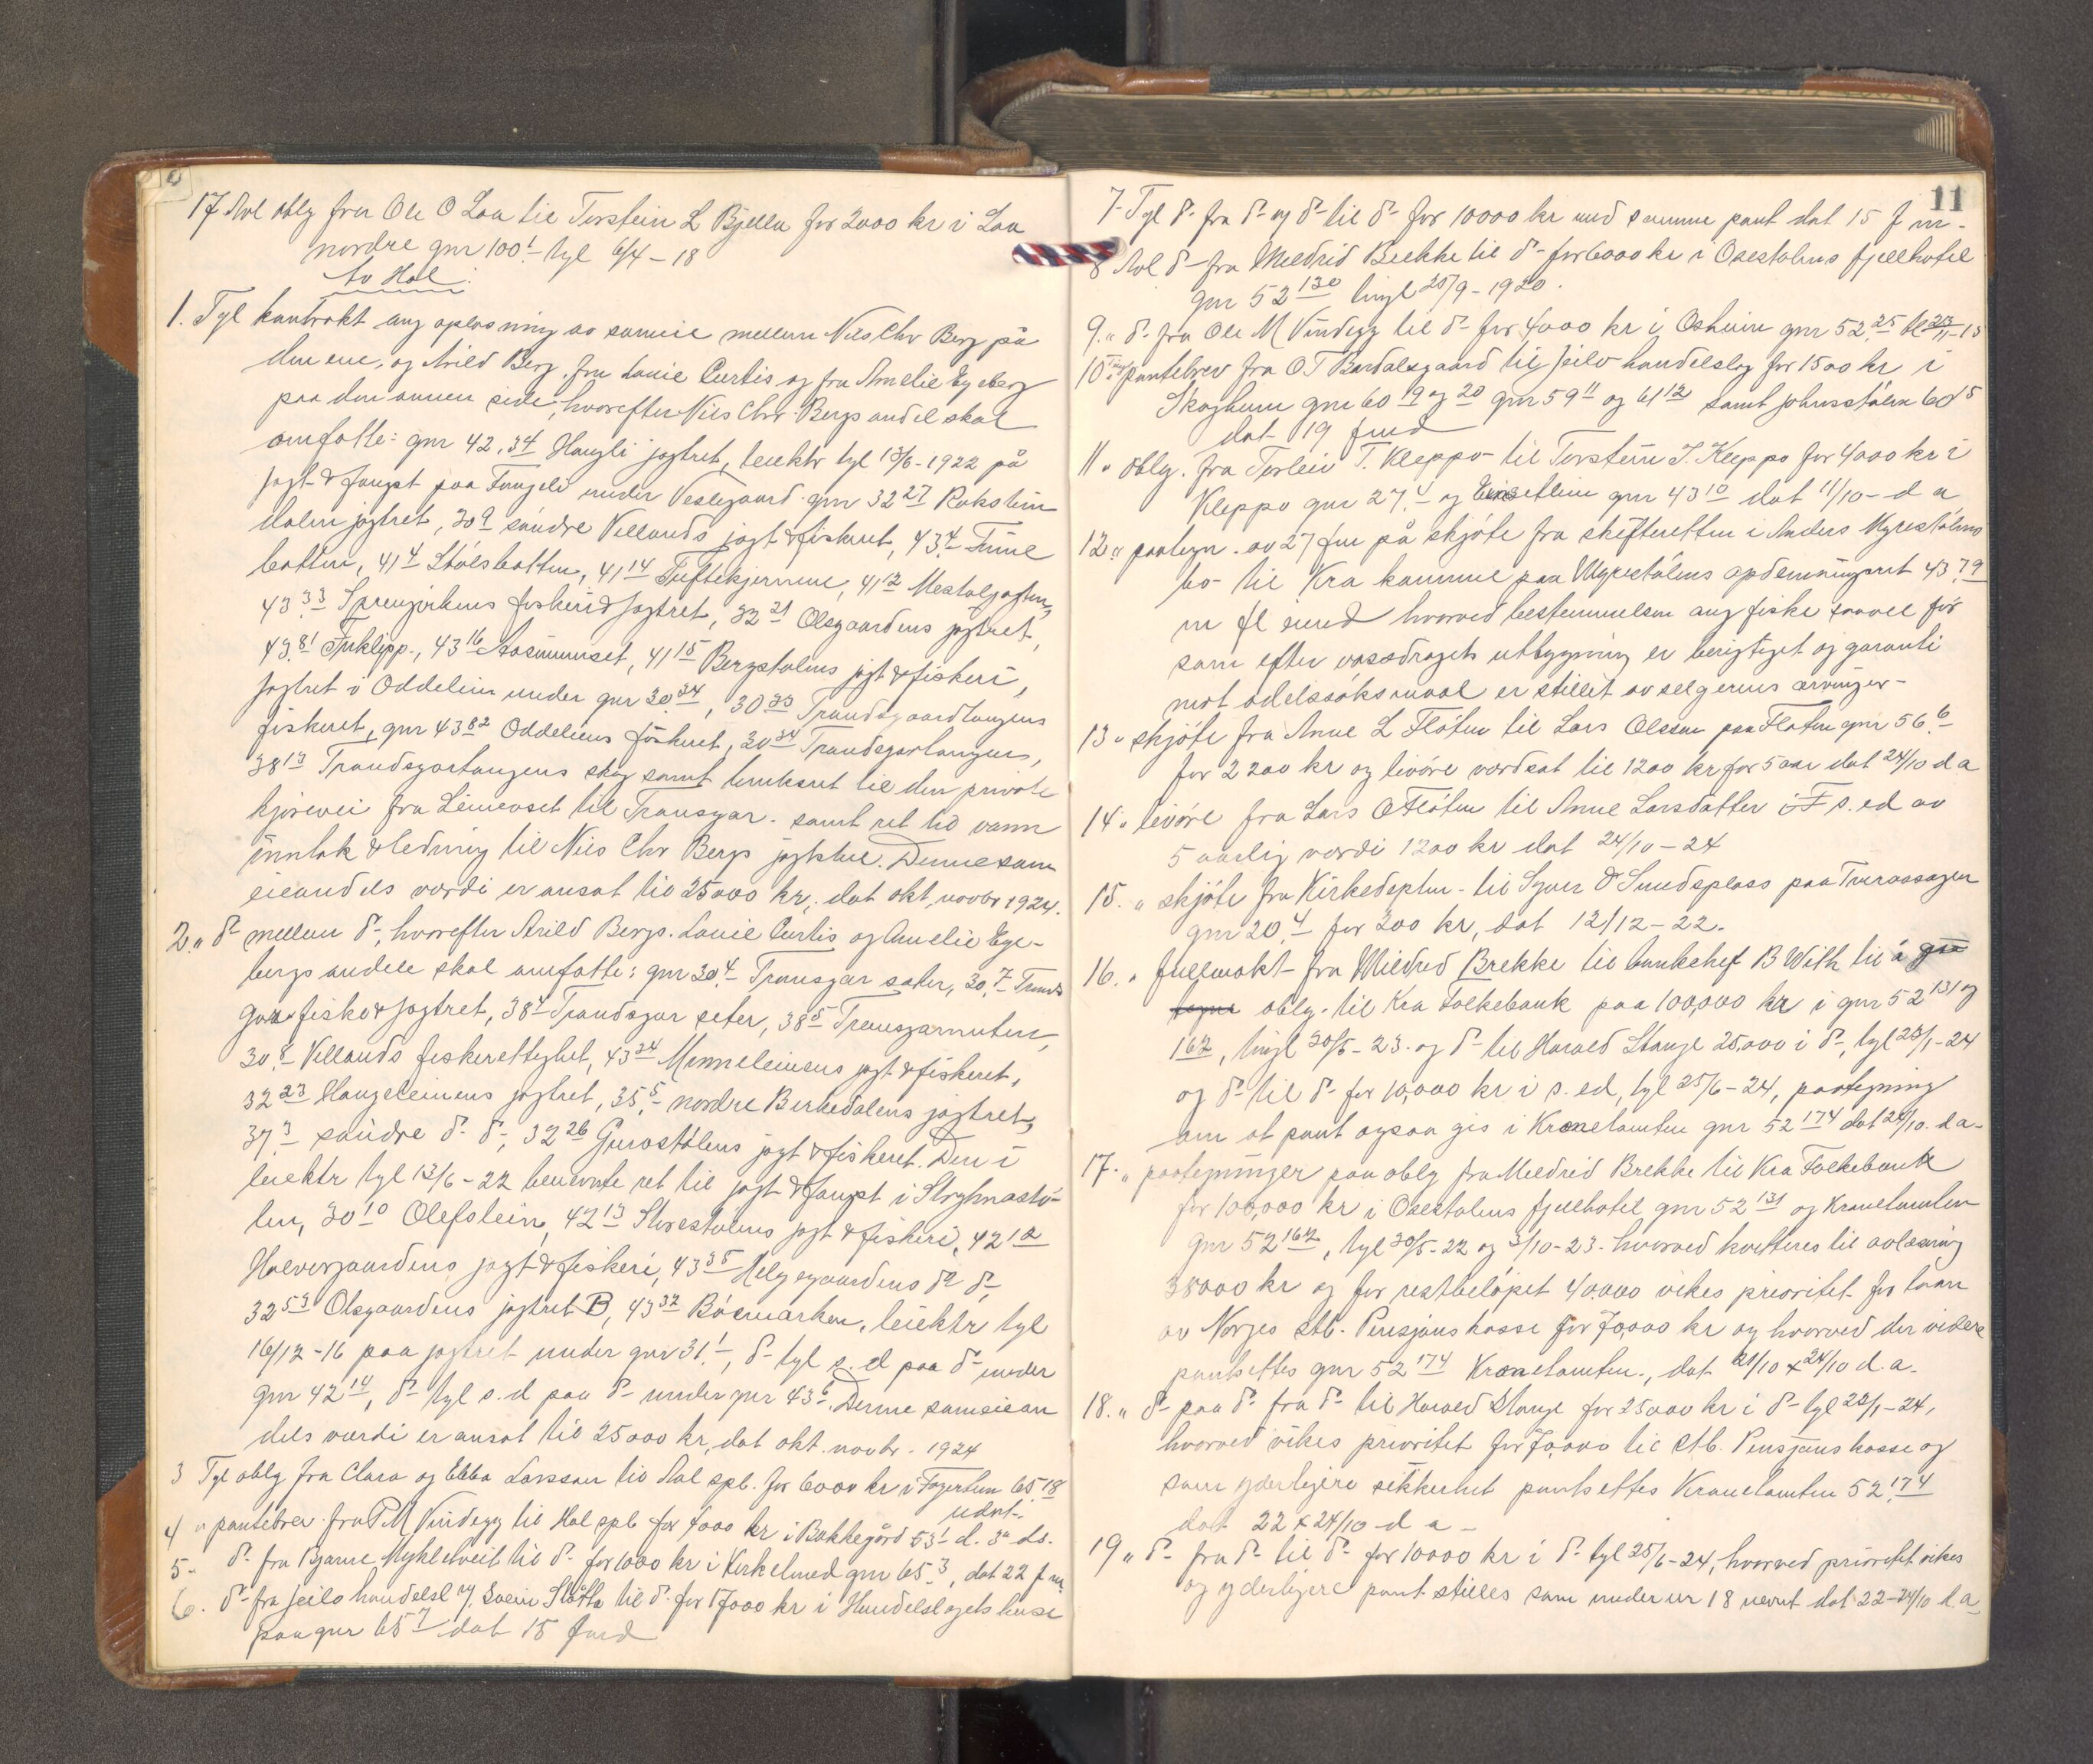 17 Avl oblg fra Ole O Laa til Torstein L Bjella for 2000 kr i Laa
nordre gnr 100.1 tgl 6/4-18
Av Hol:
1. Tgl kontrakt ang opløsning av sameie mellem Nils Chr Berg på
den ene, og Arild Berg, fru Louie Curtis og fru Amelie Egeberg
paa den annen side, hvorefter Nils Chr. Bergs andel skal
omfatte: gnr 42.34 Haugli jagtret, leiektr tgl 13/6-1922 på
jagt & fangst paa under Vestegaard gnr 32 27
dalen jagtret, 30 9 søndre Villands jagt & fiskeret, 43.4
botten, 41 4 Stølsbotten, 41 14 Tuftekjernene, 41 12
43.33 fiskeri & jagtret, 32 21 Olsgaardens jagtret,
43.81, 43 16, 41 15 Bergstølens jagt & fiskeri,
jagtret i Oddelien under gnr 30.34, 30 33
fiskeret, gnr 43 82 Oddeliens fiskeret, 30 34
38 13 skog samt bruksret til den private
kjørevei fra til Transgar. samt ret til vann
inntak & ledning til Nils Chr Bergs jagtstue. Denne sam
eieandels værdi er ansat til 25000 kr, dat okt, novbr 1924.
2. " do mellem do, hvorefter Arild Bergs. Louie Curtis og Amelie Ege-
bergs andele skal omfatte: gnr 30.4 Transgar sæter, 30.7
gar fiske & jagtret, 38 4 Trandsgar seter, 38 5 Transgarnuten,
30.8 Villands fiskerettighet, 43 24 jagt & fiskeret,
32 23 jagtret, 35.5 nordre Berkedalens jagtret,
37.3 søndre do do, 32 26 Gurostølens jagt & fiskeret. Den i
leiektr tgl 13/6-22 benevnte ret til jagt & fangst i
len, 30 10, 42 13 jagt & fiskeri, 42 12
Halvorgaardens jagt & fiskeri, 43 35 Helgegaardens do do,
32 53 Olsgaardens jagtret B, 43 32, leiektr tgl
16/12-16 paa jagtret under gnr 31.1, do tgl s. d paa do under
gnr 42 14, do tgl s. d paa do under gnr 43 6. Denne sameiean
dels værdi er ansat til 25000 kr, dat okt. novbr. 1924
3 Tgl oblg fra Clara og Ebba Larsson til Aal spb. for 6000 kr i Fagertun 65.18
udat.
4 " pantebrev fra P M Vindegg til Hol spb for 7000 kr i Bakkegård 53 1 d. 3 ds.
5 - do fra Bjarne Myhletveit til do for 1000 kr i Kirkelund gnr 65.3, dat 22 f m.
6. do fra Jeilo handelsl v/ Svein Slåtta til do for 17000 kr i Handelslagets hus
paa gnr 65 7 dat 15 fmd
11
7 - Tgl do fra do og do til do for 10000 kr med samme pant dat 15 f m.
8 Avl do fra Mildrid Brekke til do for 6000 kr i Osestølens fjellhotel
gnr 52 130 tingl 20/9-1920.
9. " do fra Ole M Vindegg til do for 4000 kr i Osheim gnr 52.25
10 pantebrev fra O T Bardalsgaard til Jeilo handelslag for 1500 kr i
Skogheim gnr 60 19 og 20 gnr 59 11 og 61 12 samt 60 5
dat 19 fmd
11 " oblg. fra Torleiv T. Kleppo til Torstein T. Kleppo for 4000 kr i
Kleppo gnr 27.4 og gnr 43 10 dat 11/10 - d a
12 " paategn. av 27 fm på skjøte fra skifteretten i Anders Myrestølens
bo til Kra kommune paa Myrestølens opdemningsret 43.79
m fl eiend hvorved bestemmelsen ang fiske saavel før
som efter vasdragets utbygning er berigtiget og garanti
mot odelssøksmaal er stillet av selgerens arvinger -
13 " skjøte fra Anne L Fløten til Lars Olsen paa Fløten gnr 56.6
for 2200 kr og livøre værdsat til 1200 kr for 5 aar dat 24/10 d a
14 " livøre fra Lars O Fløten til Anne Larsdatter i F s. ed av
5 aarlig værdi 1200 kr dat 24/10-24
15. " skjøte fra Kirkedeptm. til Syver O Sundsplass paa
gnr 20.4 for 200 kr, dat 12/12-22.
16. " fullmakt fra Mildred Brekke til bankchef B With til å
oblg. til Kra Folkebank paa 100,000 kr i gnr 52 131 og
162, tingl 30/5-23. og do til Harald Stange 25,000 i do, tgl 23/1-24
og do til do for 10,000 kr i s. ed, tgl 25/6-24, paategning
om at pant ogsaa gis i Kronetomten gnr 52 174 dat 24/10. d a-
17. " paategninger paa oblg fra Mildrid Brekke til Kra Folkebank
for 100,000 kr i Osestølens fjellhotel gnr 52 131 og Kronetomten
gnr 52 162, tgl 30/5-22 og 3/10-23. hvorved kvitteres til avløsning
38000 kr og for restbeløpet 40000 vikes prioritet for laan
av Norges Stb. Pensjonskasse for 70,000 kr og hvorved der videre
pantsettes gnr 52 174 Kronetomten., dat 21/10 & 24/10 d. a.
18. " do paa do fra do til Harald Stange for 25000 kr i do tgl 23/1-24,
hvorved vikes prioritet for 70,000 til Stb. Pensjonskasse og
som yderligere sikkerhet pantsettes Kronetomten 52.174
dat 22 & 24/10 - d a -
19 " do - fra do til do for 10000 kr i do tgl 25/6-24, hvorved prioritet vikes
og yderligere pant stilles som under nr 18 nevnt dat 22-24/10 d. a